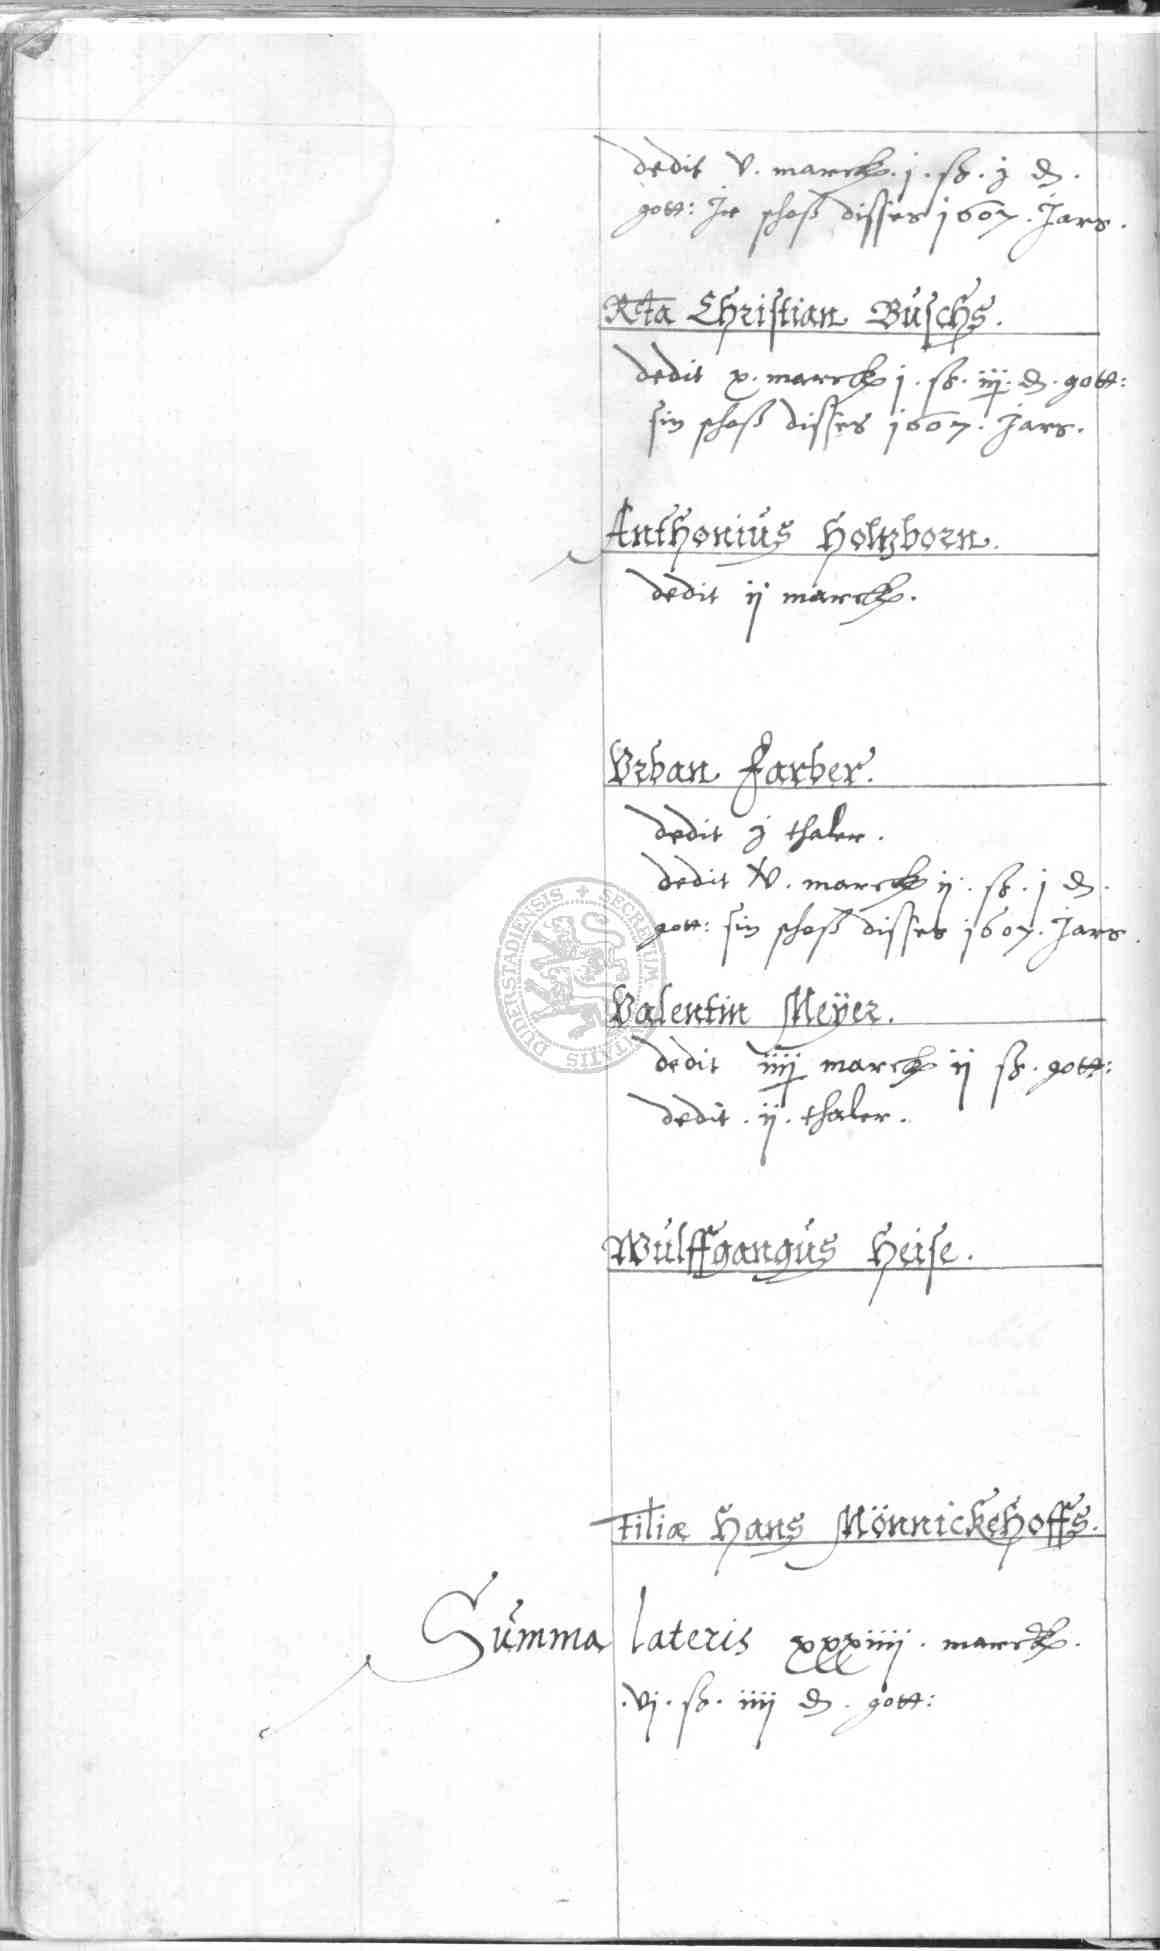 dedit v. marck. j. ß. j ₰.
gott: Ir schoß disses 1607. Jars.
Rcta Christian Büschs.
dedit x. marck j. ß. iij. ₰. gott:
sin schoß disses 1607. Jars.
Anthonius Holtzborn.
dedit ij marck.
Vrban Farber.
dedit j thaler.
dedit marck ij. ß. j ₰.
gott: sin schoß disses 1607. Jars.
Valentin Meÿer.
dedit iiij marck ij ß. gott:
dedit. ij. thaler.
Wulffgangus Heise.
Filiæ Hans Mönnickehoffs.
Summa lateris xxxiiij. marck.
.vj. ß. iiij ₰. gott:
SECRETUM CIVITATIS DUDERSTADIENSIS